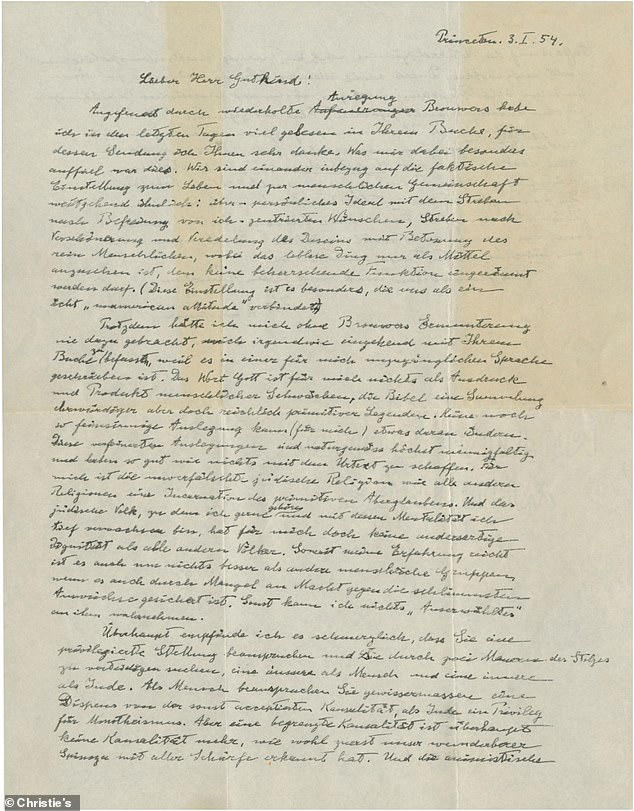 Princeton. 3. I. 54.
Lieber Herr Gutkind!
Anregung
Angefeuert durch wiederholte Brouwers habe
ich in den letzten Tagen viel gelesen in Ihrem Buche, für
dessen Sendung ich Ihnen sehr danke. Was mir dabei besonders
auffiel war dies. Wir sind einander inbezug auf die faktische
Einstellung zum Leben und zur menschlichen Gemeinschaft
weitgehend ähnlich: über-persönliches Ideal mit dem Streben
nach Befreiung von ich-zentrierten Wünschen, Streben nach
Verschönerung und Veredelung des Daseins mit Betonung des
rein Menschlichen, wobei das leblose Ding nur als Mittel
anzusehen ist, dem keine beherrschende Funktion eingeräumt
werden darf. (Diese Einstellung ist es besonders, die uns als ein
ächt „unamerican attitude" verbindet)
Trotzdem hätte ich mich ohne Brouwers Ermunterung
nie dazu gebracht, mich irgendwie eingehend mit Ihrem
Buche zu befassen, weil es in einer für mich unzugänglichen Sprache
geschrieben ist. Das Wort Gott ist für mich nichts als Ausdruck
und Produkt menschlicher Schwächen, die Bibel eine Sammlung
ehrwürdiger aber doch reichlich primitiver Legenden. Keine noch
so feinsinnige Auslegung kann (für mich) etwas daran ändern.
Diese verfeinerten Auslegungen sind naturgemäss höchst mannigfaltig
und haben so gut wie nichts mit dem Urtext zu schaffen. Für
mich ist die unverfälschte jüdische Religion wie alle anderen
Religionen eine Incarnation des primitiven Aberglaubens. Und das
jüdische Volk, zu dem ich gerne gehöre und mit dessen Mentalität ich
tief verwachsen bin, hat für mich doch keine andersartige
Dignität als alle anderen Völker. Soweit meine Erfahrung reicht
ist es auch um nichts besser als andere menschliche Gruppen,
wenn es auch durch Mangel an Macht gegen die schlimmsten
Auswüchse gesichert ist. Sonst kann ich nichts „Auserwähltes"
an ihm wahrnehmen.
Überhaupt empfinde ich es schmerzlich, dass Sie eine
privilegierte Stellung beanspruchen und Sie durch zwei Mauern des Stolzes
zu verteidigen suchen, eine äussere als Mensch und eine innere
als Jude. Als Mensch beanspruchen Sie gewissermassen einen
Dispens von der sonst acceptierten Kausalität, als Jude ein Privileg
für Monotheismus. Aber eine begrenzte Kausalität ist überhaupt
keine Kausalität mehr, wie wohl zuerst unser wunderbarer
Spinoza mit aller Schärfe erkannt hat. Und die animistische
© Christie's